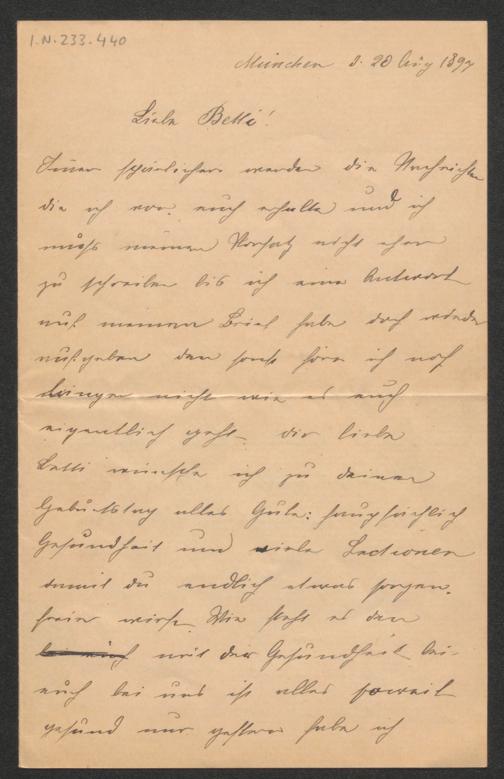 I.N. 233.440
München d. 20 Aug 1897
Liebe Betti!
Immer spärlicher werden die Nachrichten
die ich von euch erhalte und ich
muß meinen Vorsatz nicht eher
zu schreiben bis ich eine Antwort
auf meinen Brief habe doch wieder
aufgeben den sonst höre ich noch
nicht wie es euch
eigentlich geht. dir liebe
Betti wünsche ich zu deinem
Geburtstag alles Gute: hauptsächlich
Gesundheit und viele Lectionen
damit du endlich etwas sorgen-
freier wirst. Wie steht es den
mit der Gesundheit bei
euch bei uns ist alles soweit
gesund nur gestern habe ich